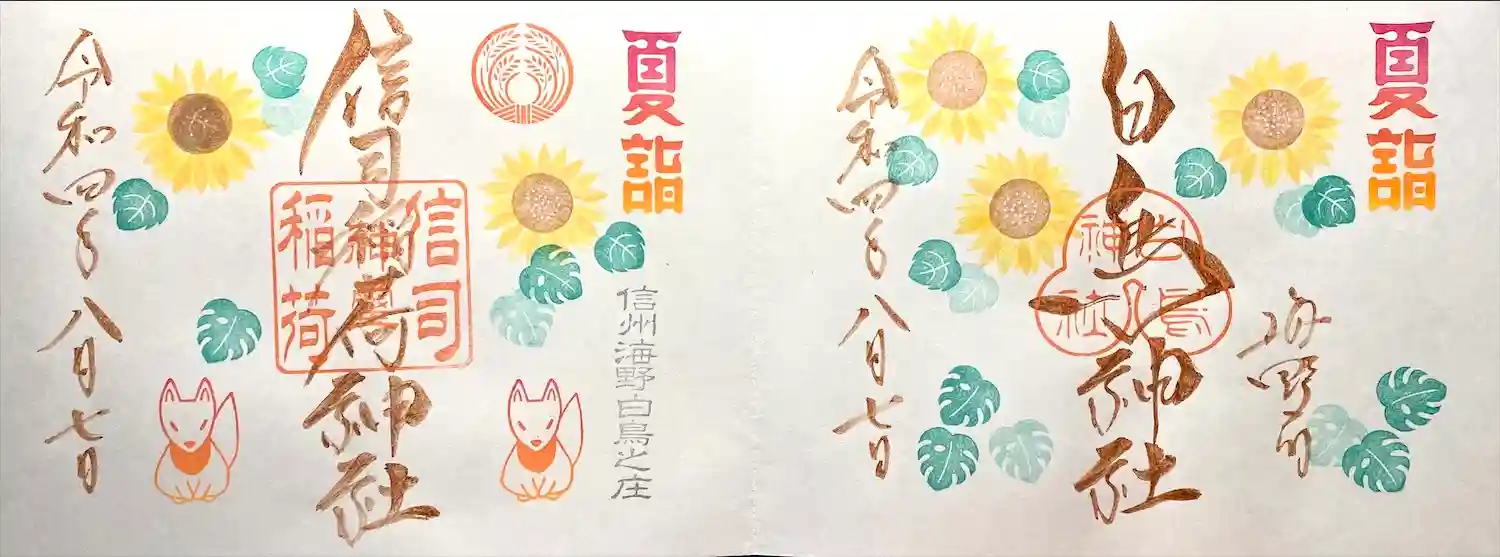 夏詣
海野宿
白鳥神社
白鳥
神社
令和四年八月七日
夏詣
信州海野白鳥之庄
信司稲荷神社
信司
稲荷
令和四年八月七日